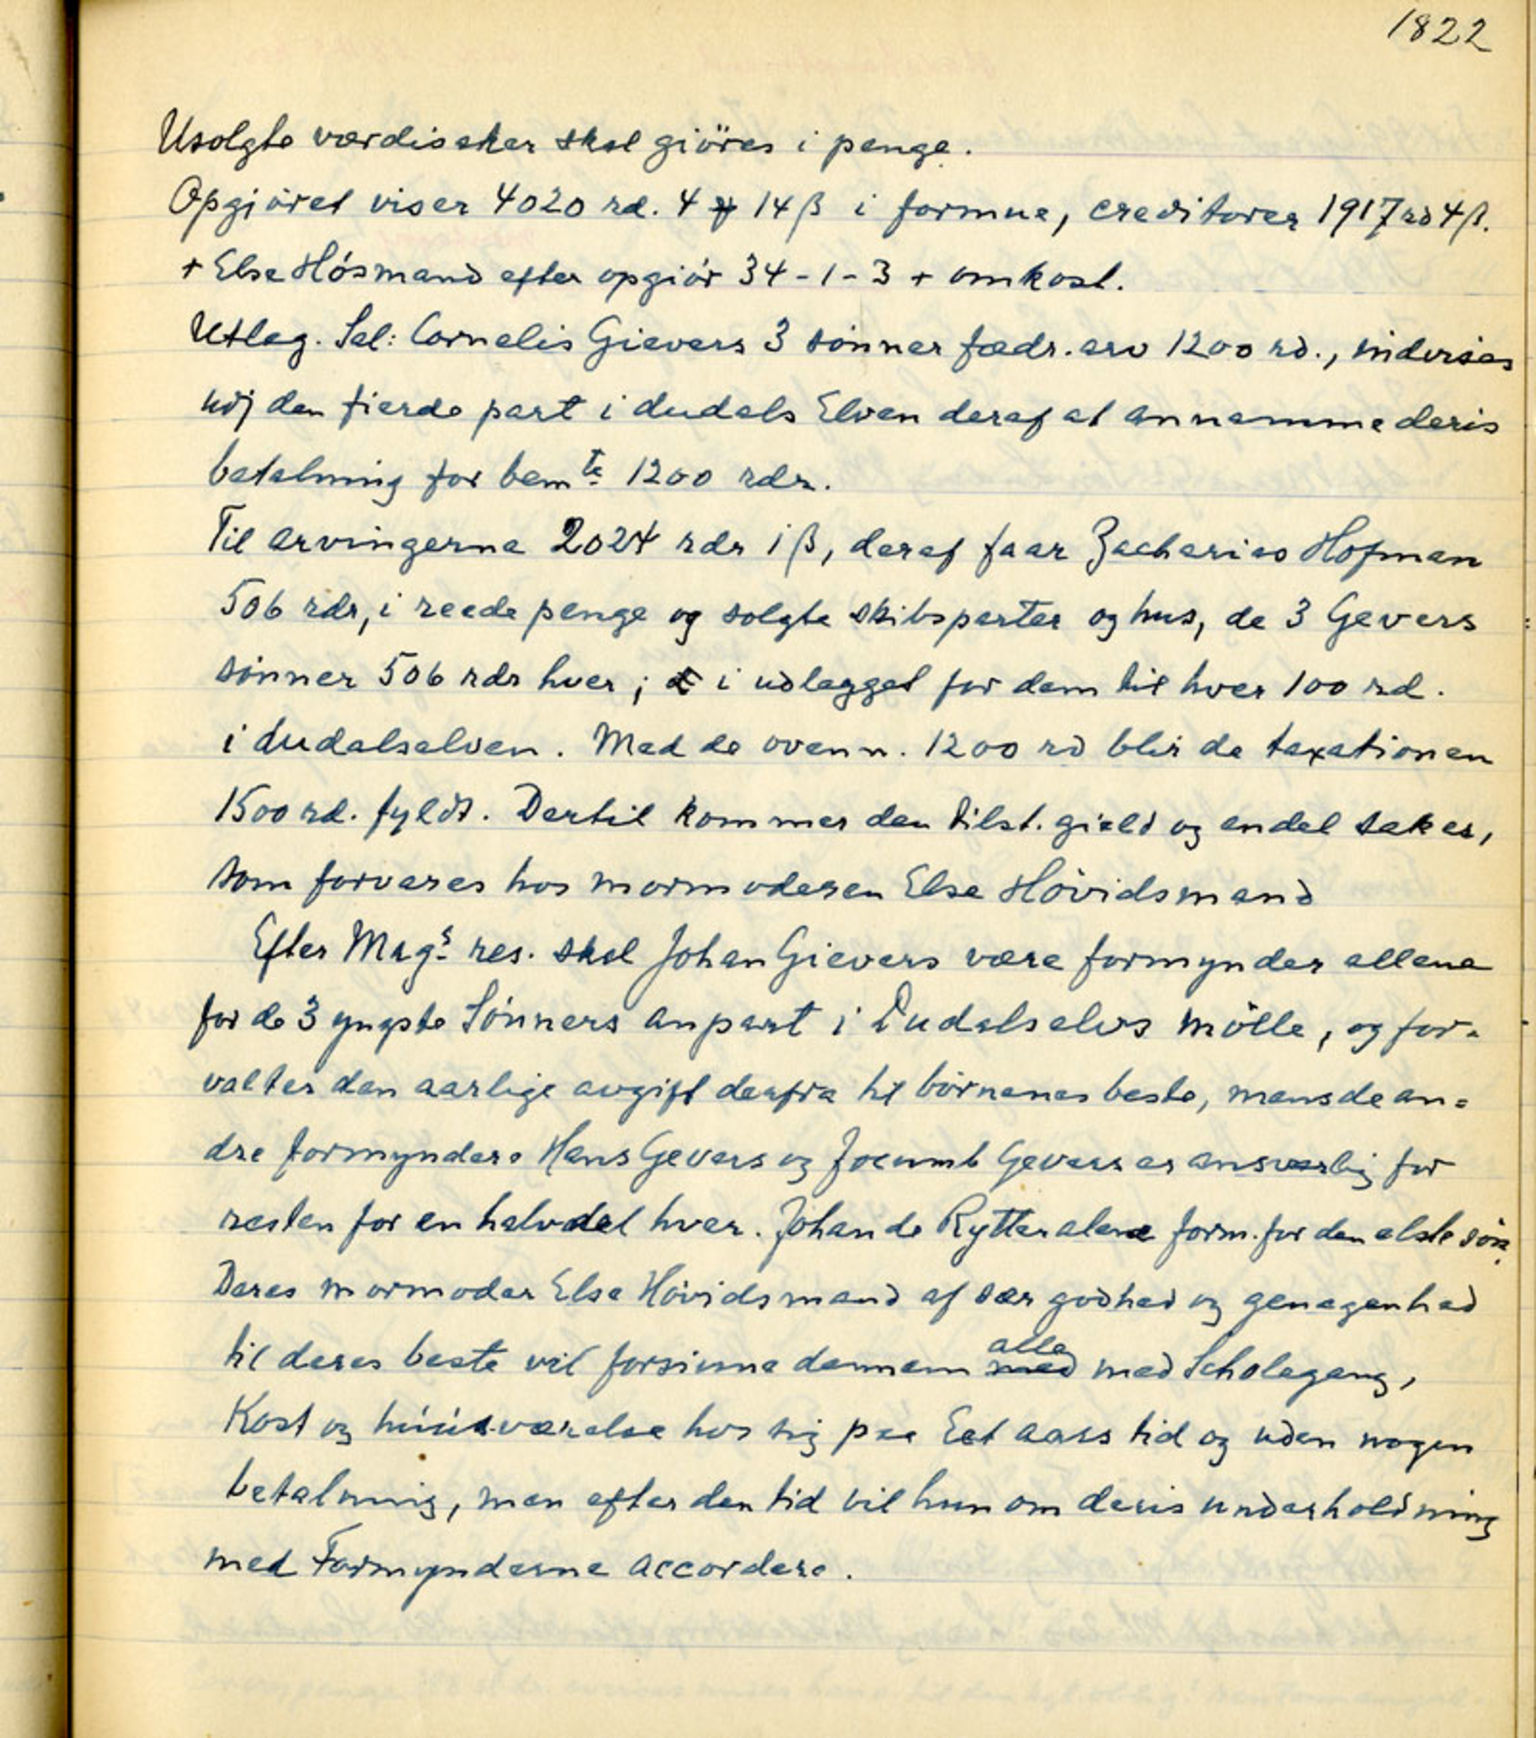 1822
Usolgte værdisaker skal giöres i penge.
Opgjöret viser 4020 rd. 4 ƶ 14 β i formue, creditorer 1917 rd 4 β.
+ Else Hösmand efter opgiör 34-1-3 + omkost.
Utlag. Sal: Cornelis Gievers 3 sönner fædr. arv 1200 rd., indvises
udj den fierde part i dudals Elven deraf at annamme deris
betalning for bemte. 1200 rdr.
Til arvingerne 2024 rdr 1 β, deraf faar Zacharias Hofman
506 rdr, i reede penge og solgte skibsparter og hus, de 3 Gevers
sönner 506 rdr hver; i udlægget for dem til hver 100 rd.
i dudalselven. Med de ovenn. 1200 rd blir de taxationen
1500 rd. fyldt. Dertil kommer den tilst. gield og endel saker,
som forvares hos mormoderen Else Hövidsmand
Efter Mags. res. skal Johan Gievers være formynder allene
for de 3 yngste Sönners anpart i Dudalselvs mölle, og for-
valter den aarlige avgift derfra til börnenes beste, mens de an=
dre formyndere Hans Gevers og Jocumb Gevers er ansvarlig for
resten for en halvdel hver. Johan de Rytter alene form. for den elste sön.
Deres mormoder Else Hövidsmand af sær godhed og genegenhed
til deres beste vil forsiune dennem alle med Scholegang,
Kost og húúsværelse hos sig paa Eet aars tid og uden nogen
betalning, men efter den tid vil hun om deris underholdning
med Formynderne accordere.